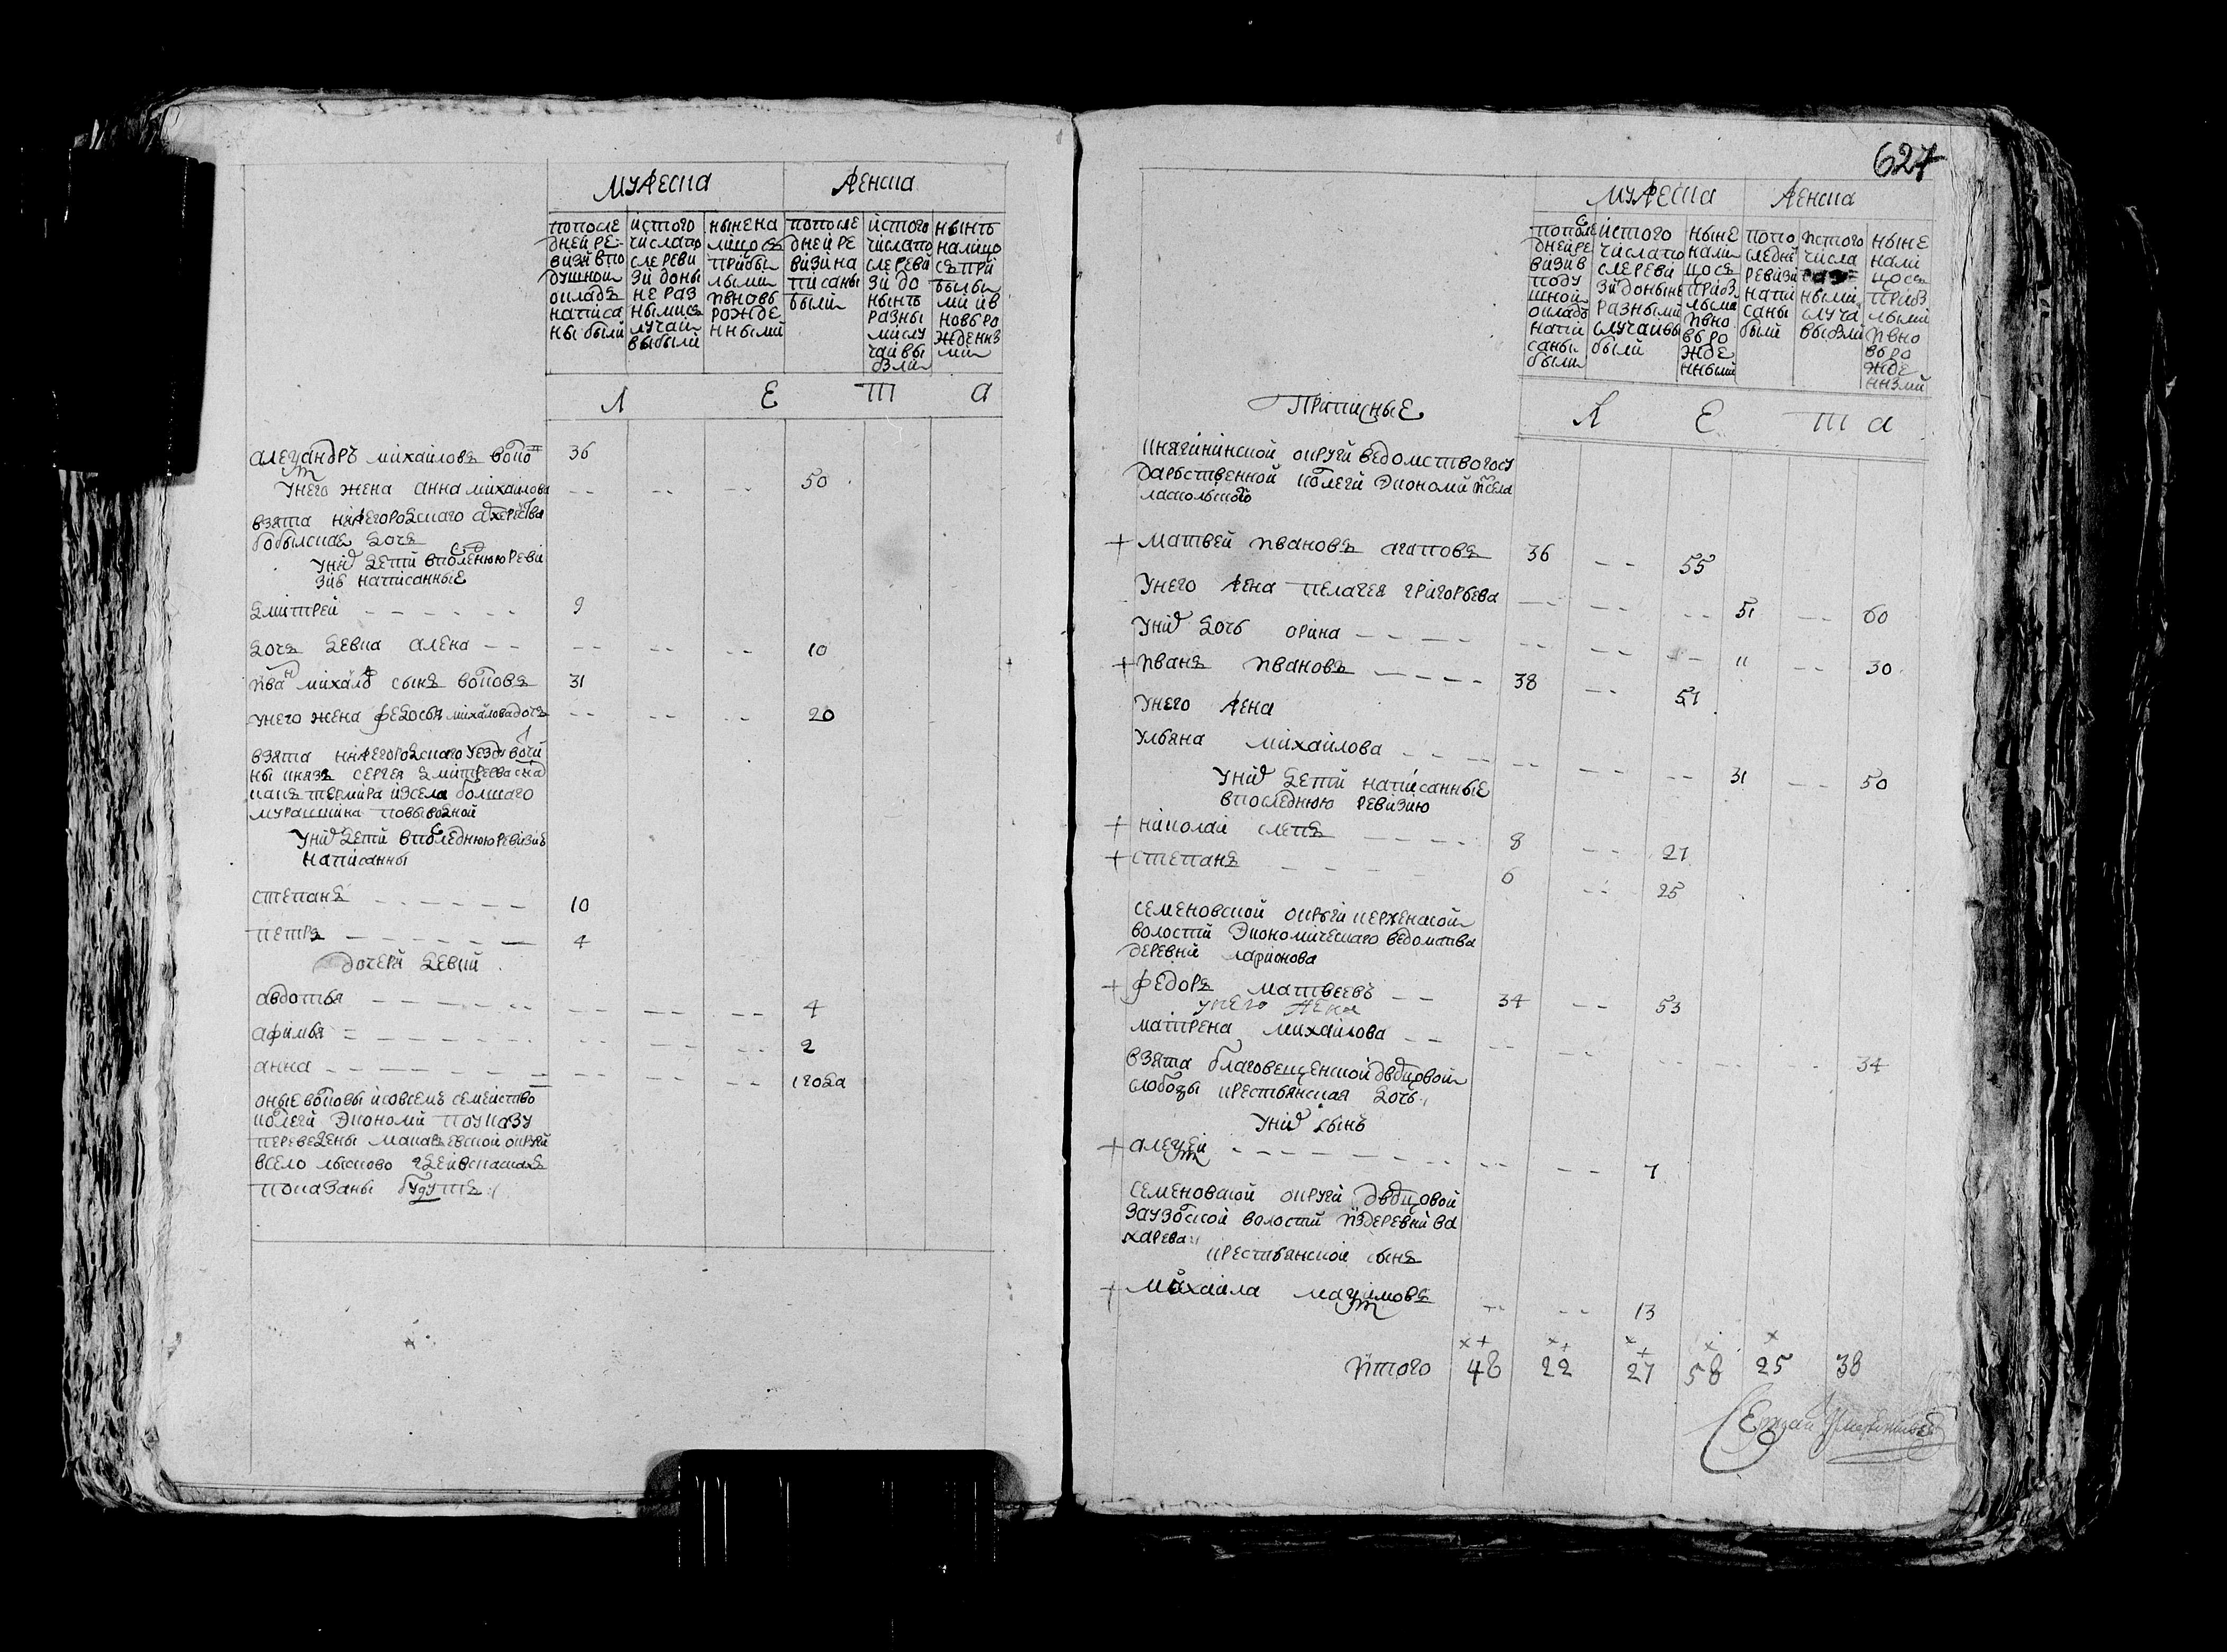 мужеска женска
по после
дней ре-
визи в по
душной
окладъ
написа
ны были
ис того
числа по
сле реви
зи до ны
не раз
ными с
лучаи
выбыли
ныне на
лицо съ
прибы
лыми
и вновь
рожде
нными
по после
дней ре
визи на
писаны
были
ис того
числа по
сле реви
зи до
нынъ
разны
ми слу
чаи вы
были
нынъ
налицо
съ при
былы
ми и в
новь ро
жденны
ми
л е т а
алеѯандръ михаиловъ вопо 36
у него жена анна михаилова -- -- -- 50
взята нижегородскаго
бобылская дочь
у них дети в последнюю реви
зию написанные
дмитрей - - - - - - 9
дочь девка алена -- -- -- -- 10
иван михаилов сынъ воповъ 31
у него жена федосья михаилова дочь -- -- -- 20
взята нижегородскаго уезду вотчи
ны князь сергея дмитреевича
из села болшаго
мурашкина по выводной
у них дети в последнюю ревизию
написанны
степанъ - - - - - - 10
петръ - - - - - - 4
дочери девки
авдотья - - - - - - -- -- -- 4
афимья - - - - - - -- -- -- 2
анна - - - - - - -- -- -- 1 года
оные воповы и со всемъ семеиство
колеги экономи по указу
переведены макарьевской округи
в село лысково где и в сказкахъ
показаны будутъ
627
мужеска женска
по после
дней ре
визи в
поду
шной
окладъ
напи
саны
были
ис того
числа по
сле реви
зи до ныне
разными
случаи вы
были
ныне
нали
цо съ
прибы
лыми
и вно
вь ро
жде
нными
по по
следне
ревизи
напи
саны
были
ис того
числа
раз
ными
случа
выбыли
ныне
нали
цо съ
прибы
лыми
и вно
вь ро
жде
нными
л е т а
Приписные
княгининской округи ведомство госу
дарьственной колеги экономи ис села
+ матвей ивановъ агаповъ 36 -- 55
у него жена пелагея григорьева -- -- -- 51 -- 60
у них дочь орина - - - - -- -- -- 11 -- 30
+ иванъ ивановъ - - - - 38 -- 51
у него жена
ульяна михаилова - - -- -- -- 31 -- 50
у них дети написанные
в последнюю ревизию
+ николаи слепъ - - - - 8 -- 27
+ степанъ - - - - 6 -- 25
семеновской округи керженской
волости экономическаго ведомства
деревни ларионова
+ федоръ матвеевъ -- 34 -- 53
у него жена
матрена михаилова -- -- -- -- -- -- 34
взята благовещенской дворцовой
слободы крестьянская дочь
у них сынъ
+ алеѯей - - - - - - -- -- 7
семеновской округи дворцовой
заузолской волости из деревни за
харева
крестьянской сынъ
+ михаила маѯимовъ -- -- 13
итого 48 22 27 58 25 38